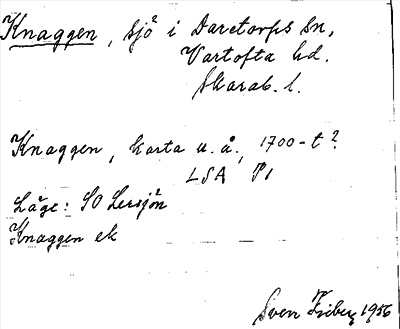 Knaggen, sjö i Daretorps sn,
Vartofta hd.
Skarab. l.
Knaggen, karta u.å., 1700-t?
LSA P1
Läge: SO Lersjön
Knaggen ek
Sven Friberg 1956